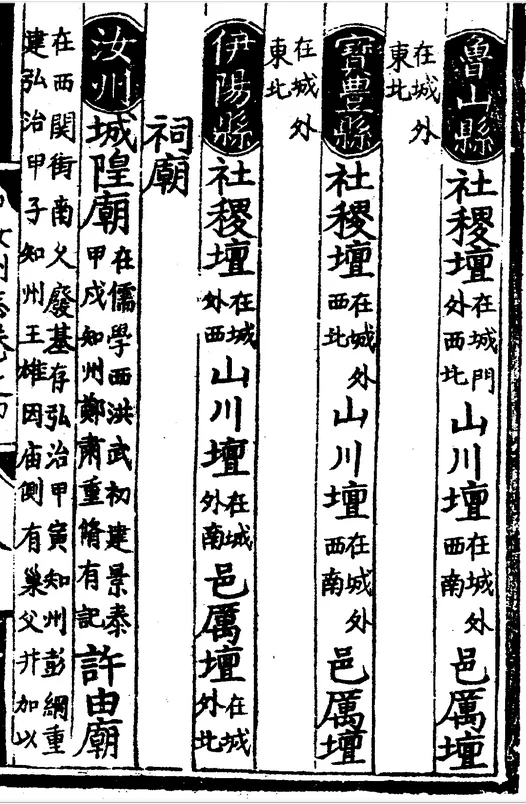 魯山縣社稷壇在城門外西北山川壇在城外西南邑厲壇
在城外東北
寶豊縣社稷壇在城外西北山川壇在城外西南邑厲壇
在城外東北
伊陽縣社稷壇在城外西山川壇在城外南邑厲壇在城外北
祠廟
汝州城隍廟在儒學西洪武初建景泰甲戍知州鄭肅重脩有記許由廟
在西関街南久廢基存弘治甲寅知州彭綱重
建弘治甲子知州王雄因庙側有巢父井加以